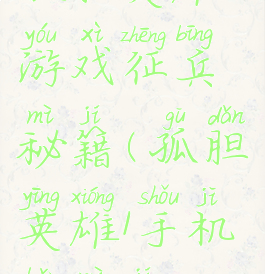 yóu xì zhēng bīng
游戏征兵
mì jí gū dǎn
秘籍(孤胆
yīng xióng shǒu jī
英雄/手机